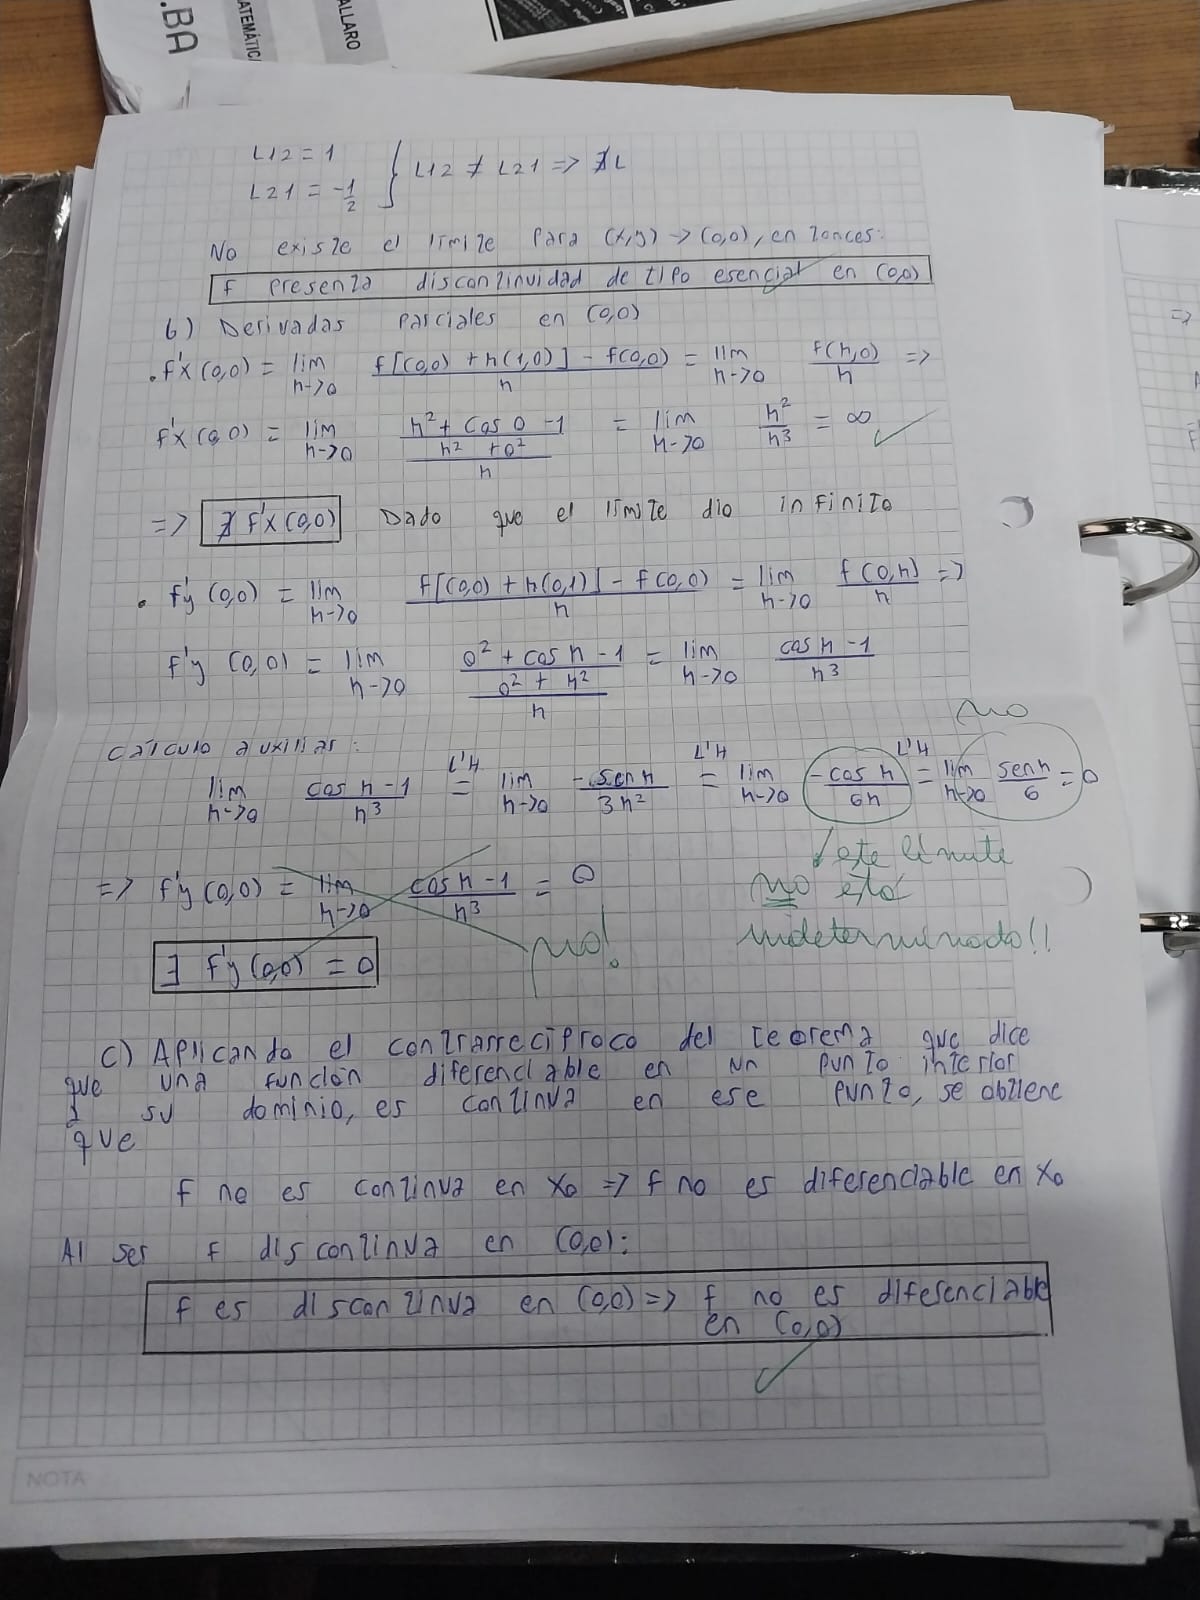 .BA
ATEMÁTIC
ALLARO
L12 = 1
L21 = -1/2 } L12 ≠ L21 => ∄ L
No existe el límite para (x,y) -> (0,0), entonces:
f presenta discontinuidad de tipo esencial en (0,0)
b) Derivadas parciales en (0,0)
. f'x (0,0) = lim h->0 f[(0,0) + h(1,0)] - f(0,0) / h = lim h->0 f(h,0) / h =>
f'x (0,0) = lim h->0 h² + cos 0 - 1 / h² + 0² / h = lim h->0 h² / h³ = ∞ ✓
=> ∄ f'x (0,0) Dado que el límite dio infinito
. f'y (0,0) = lim h->0 f[(0,0) + h(0,1)] - f(0,0) / h = lim h->0 f(0,h) / h =>
f'y (0,0) = lim h->0 0² + cos h - 1 / 0² + h² / h = lim h->0 cos h - 1 / h³
no
Cálculo auxiliar:
lim h->0 cos h - 1 / h³ =(L'H) lim h->0 -sen h / 3h² =(L'H) lim h->0 -cos h / 6h =(L'H) lim h->0 sen h / 6 = 0
este límite
no está
indeterminado!!
=> f'y (0,0) = lim h->0 cos h - 1 / h³ = 0
no!
∃ f'y (0,0) = 0
c) Aplicando el contrarrecíproco del teorema que dice
que una función diferenciable en un punto interior
a su dominio, es continua en ese punto, se obtiene
que
f no es continua en x₀ => f no es diferenciable en x₀
Al ser f discontinua en (0,0):
f es discontinua en (0,0) => f no es diferenciable
en (0,0)
✓
NOTA